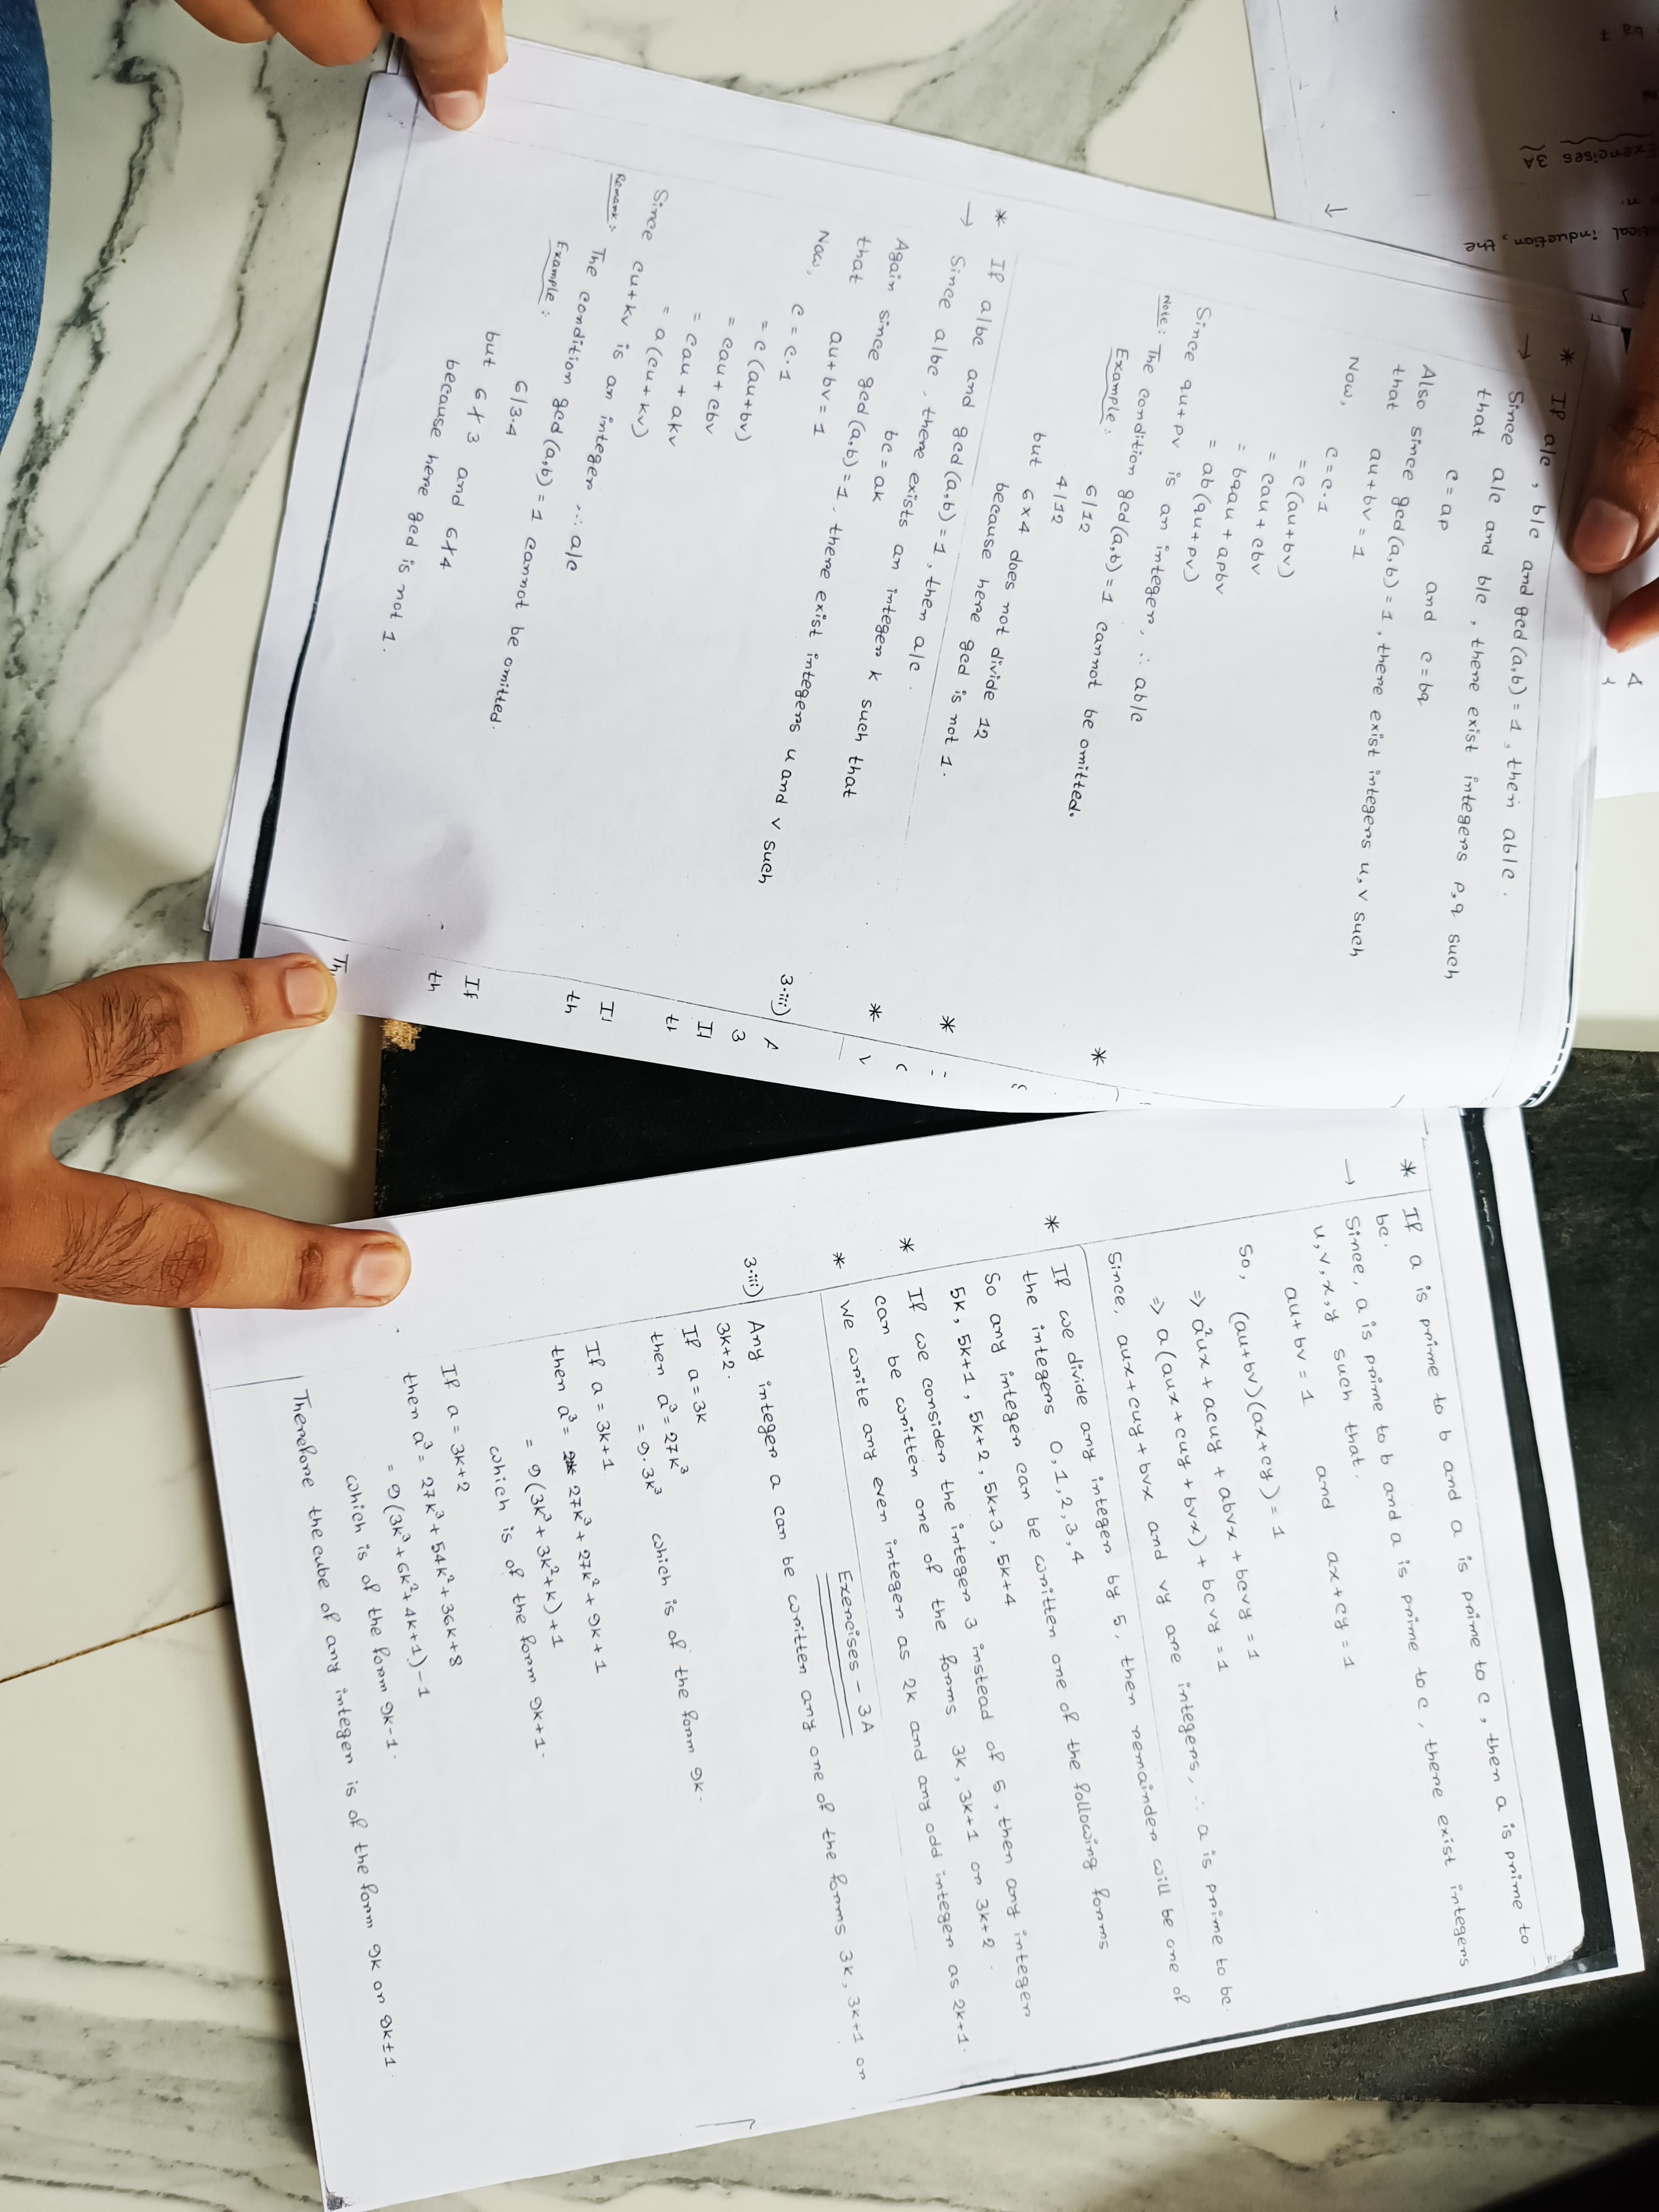 Exercises 3A
tical induction, the
* If a/c, b/c and gcd(a,b) = 1, then ab/c.
→ Since a/c and b/c, there exist integers p,q such
that
c = ap and c = bq
Also since gcd(a,b) = 1, there exist integers u, v such
that
au + bv = 1
Now,
c = c.1
= c(au+bv)
= cau + cbv
= bqau + apbv
= ab(qu+pv)
Since qu+pv is an integer, ∴ ab/c
Note: The condition gcd(a,b)=1 cannot be omitted.
Example:
6/12
4/12
but 6×4 does not divide 12
because here gcd is not 1.
* If a/bc and gcd(a,b)=1, then a/c.
→ Since a/bc, there exists an integer k such that
bc = ak
Again since gcd(a,b)=1, there exist integers u and v such
that
au+bv = 1
Now,
c = c.1
= c(au+bv)
= cau + cbv
= cau + akv
= a(cu+kv)
Since cu+kv is an integer, ∴ a/c
Remark:- The condition gcd(a,b)=1 cannot be omitted.
Example:
6/3.4
but 6∤3 and 6∤4
because here gcd is not 1.
*
*
*
3.iii)
3
If
th
If
th
If
th
* If a is prime to b and a is prime to c, then a is prime to
bc.
→ Since, a is prime to b and a is prime to c, there exist integers
u, v, x, y such that.
au + bv = 1 and ax + cy = 1
So, (au+bv)(ax+cy) = 1
=> a²ux + acuy + abvx + bcvy = 1
=> a(aux + cuy + bvx) + bcvy = 1
Since, aux+cuy+bvx and vy are integers, ∴ a is prime to bc.
* If we divide any integer by 5, then remainder will be one of
the integers 0, 1, 2, 3, 4
So any integer can be written one of the following forms
5k, 5k+1, 5k+2, 5k+3, 5k+4
* If we consider the integer 3 instead of 5, then any integer
can be written one of the forms 3k, 3k+1 or 3k+2.
* We write any even integer as 2k and any odd integer as 2k+1.
Exercises - 3A
3.iii) Any integer a can be written any one of the forms 3k, 3k+1 or
3k+2.
If a = 3k
then a³ = 27k³
= 9.3k³ which is of the form 9k.
If a = 3k+1
then a³ = 27k³ + 27k² + 9k + 1
= 9(3k³ + 3k² + k) + 1
which is of the form 9k+1.
If a = 3k+2
then a³ = 27k³ + 54k² + 36k + 8
= 9(3k³ + 6k² + 4k + 1) - 1
which is of the form 9k-1.
Therefore the cube of any integer is of the form 9k or 9k±1.